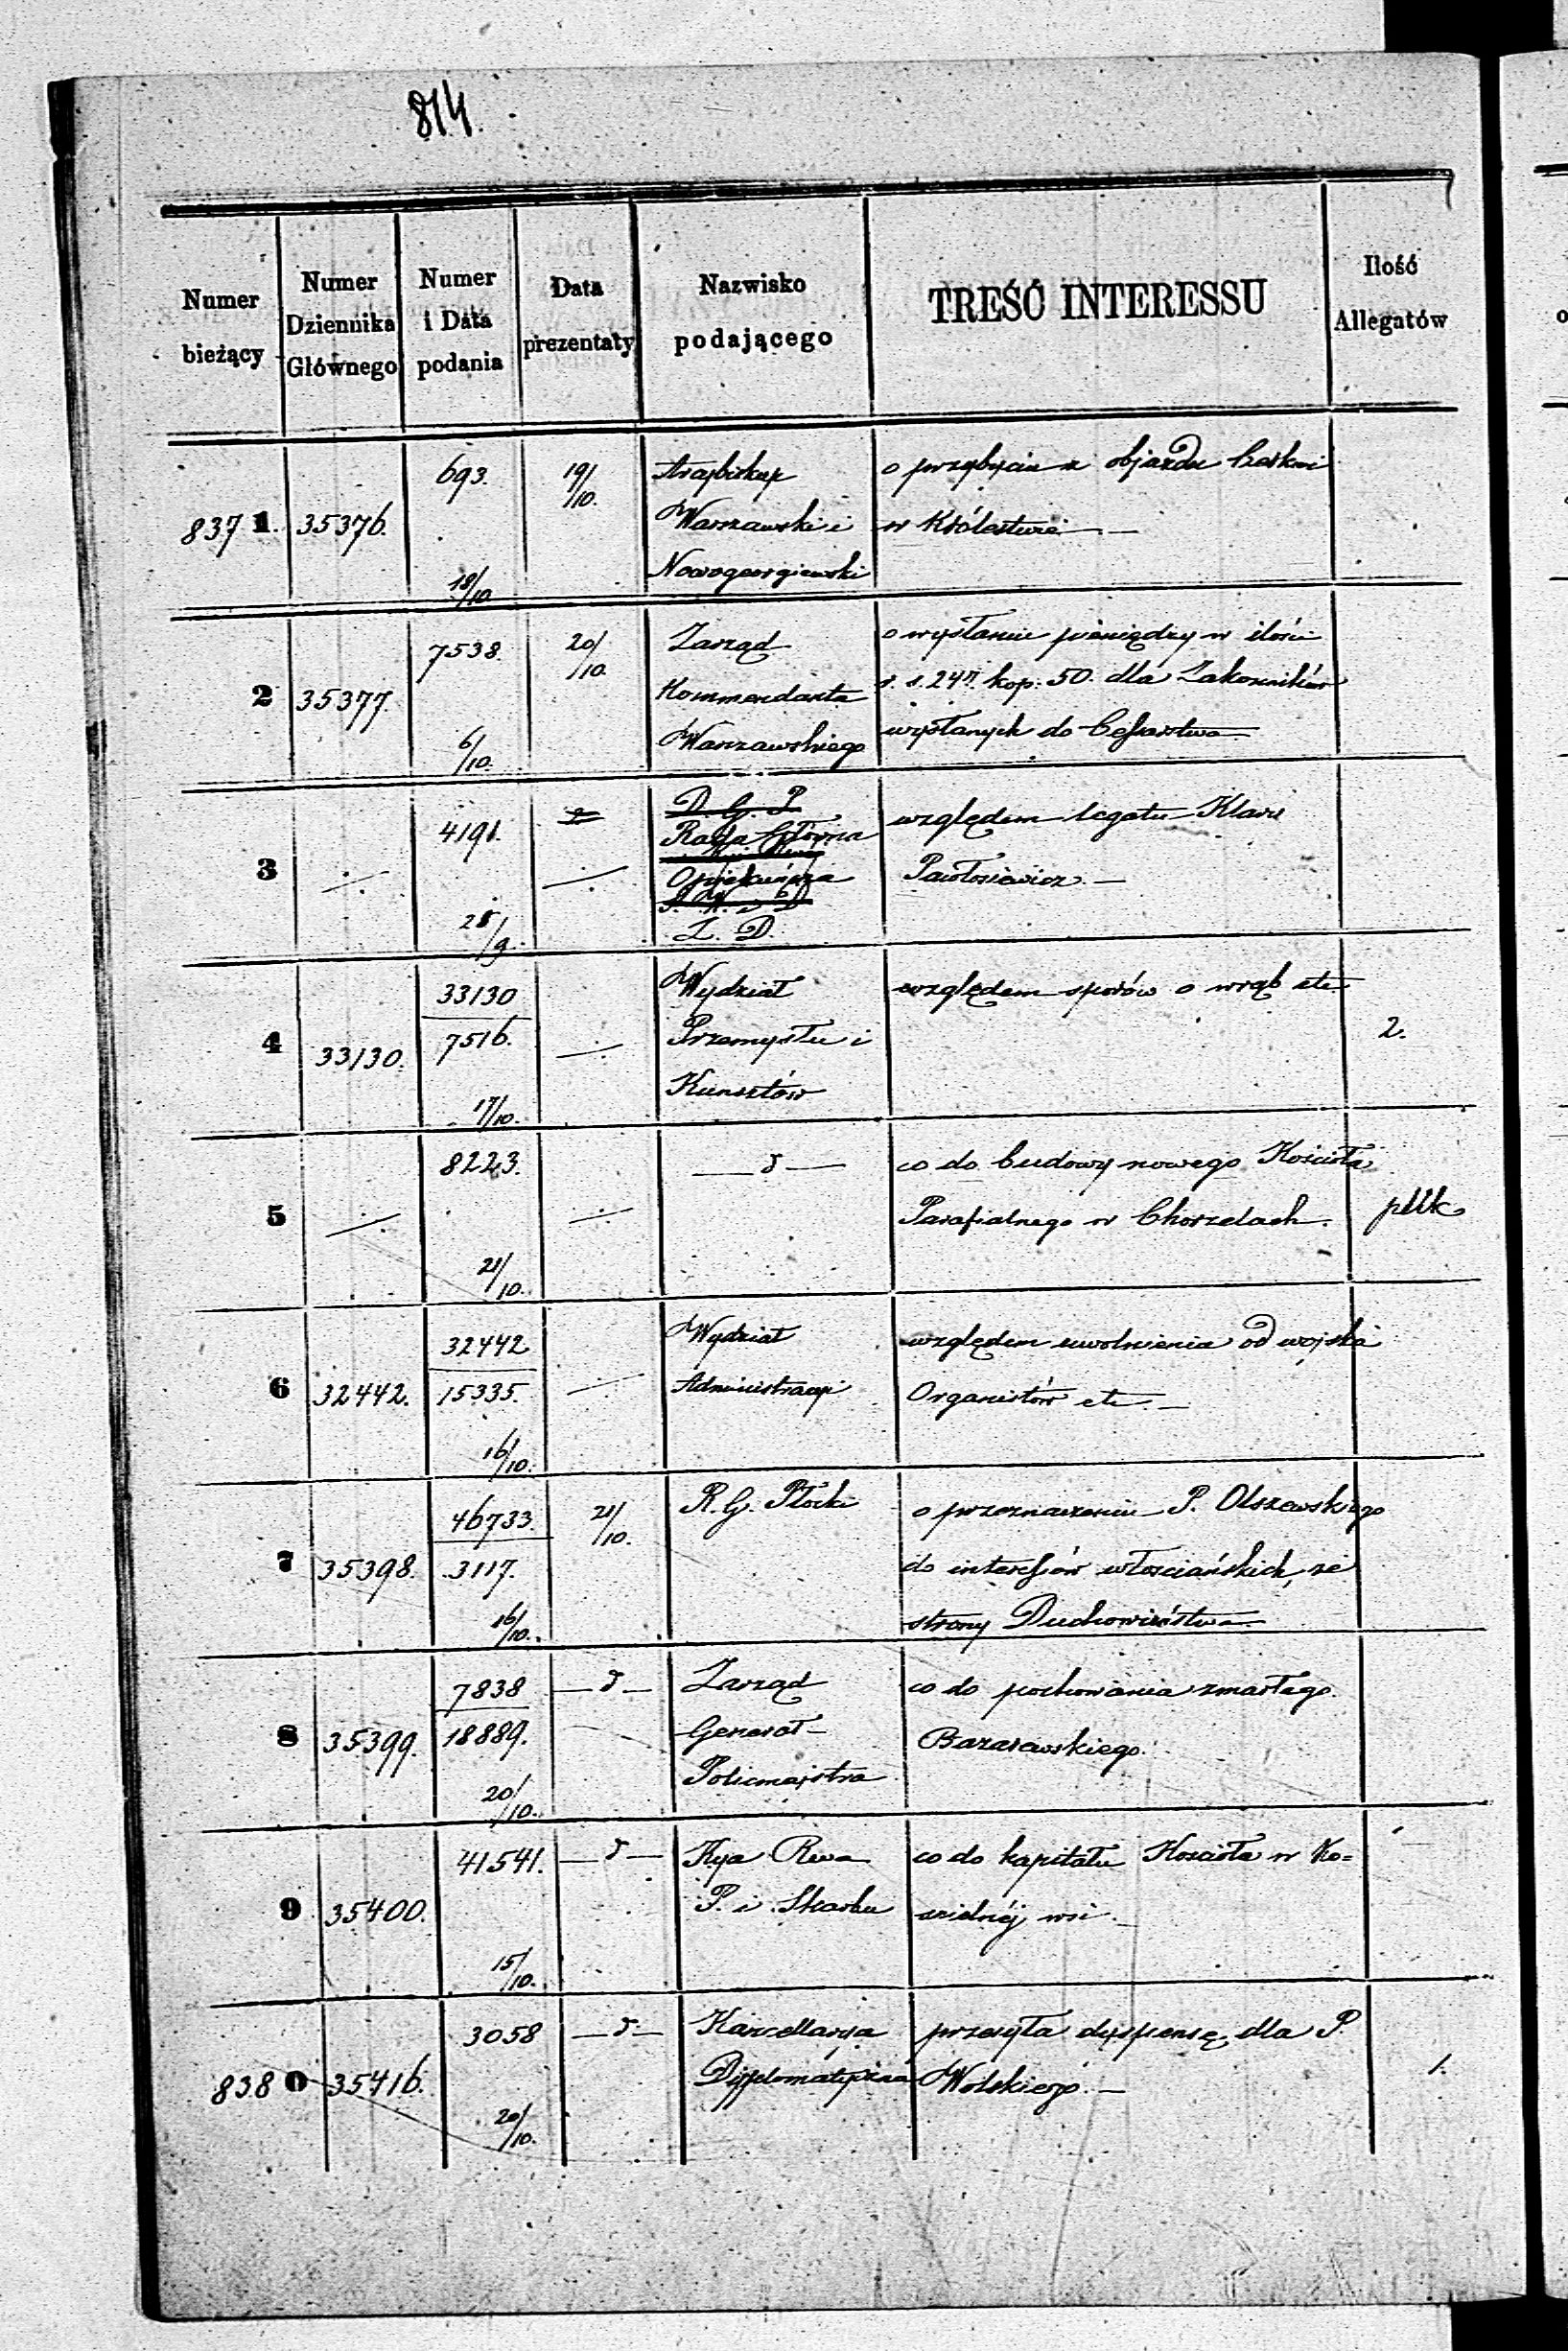 814.
Numer bieżący
Numer Dziennika Głównego
Numer i Data podania
Data prezentaty
Nazwisko podającego
TREŚĆ INTERESSU
Ilość Allegatów
8371. 35376. 693. 18/10 19/10.
Arcybiskup
Warszawski i
Nowogeorgiewski
o przybyciu z objazdu
w Królestwie. —
2 35377. 7538. 6/10. 20/10.
Zarząd
Kommendanta
Warszawskiego
o wysłaniu pieniędzy w ilości
r. s. 247. kop: 50. dla Zakonników
wysłanych do Cessarstwa
3 ⁒ 4191. 28/9. ⁒
D. G. P
Rada Główna
Opiekuńcza
Z. D.
względem legatu Klary
Pawłosiewicz. —
4 33130. 33130 7516. 17/10. ⁒
Wydział
Przemysłu i
Kunsztów
względem sporów o wrąb etc
2.
5 ⁒ 8223. 21/10. ⁒
— d —
co do budowy nowego Kościoła
Parafialnego w Chorzelach.
plik
6 32442. 32442 15335. 16/10. ⁒
Wydział
Administracyi
względem uwolnienia od wojska
Organistów etc. —
7 35398. 46733. 3117. 16/10. 21/10.
R. G. Płocki
o przeznaczeniu P. Olszewskiego
do interessów włościańskich, ze
strony Duchowieństwa.
8 35399. 7838 18889. 20/10. — d —
Zarząd
Generał-
Policmajstra
co do pochowania zmarłego
Bazarewskiego.
9 35400. 41541. 15/10. — d —
Kya Rwa
P. i Skarbu
co do kapitału Kościoła w Ko=
zielnéj wsi. —
8380 35416. 3058 20/10. — d —
Kancellarya
Dyplomatyczna
przesyła dyspensę dla P.
Wolskiego. —
1.